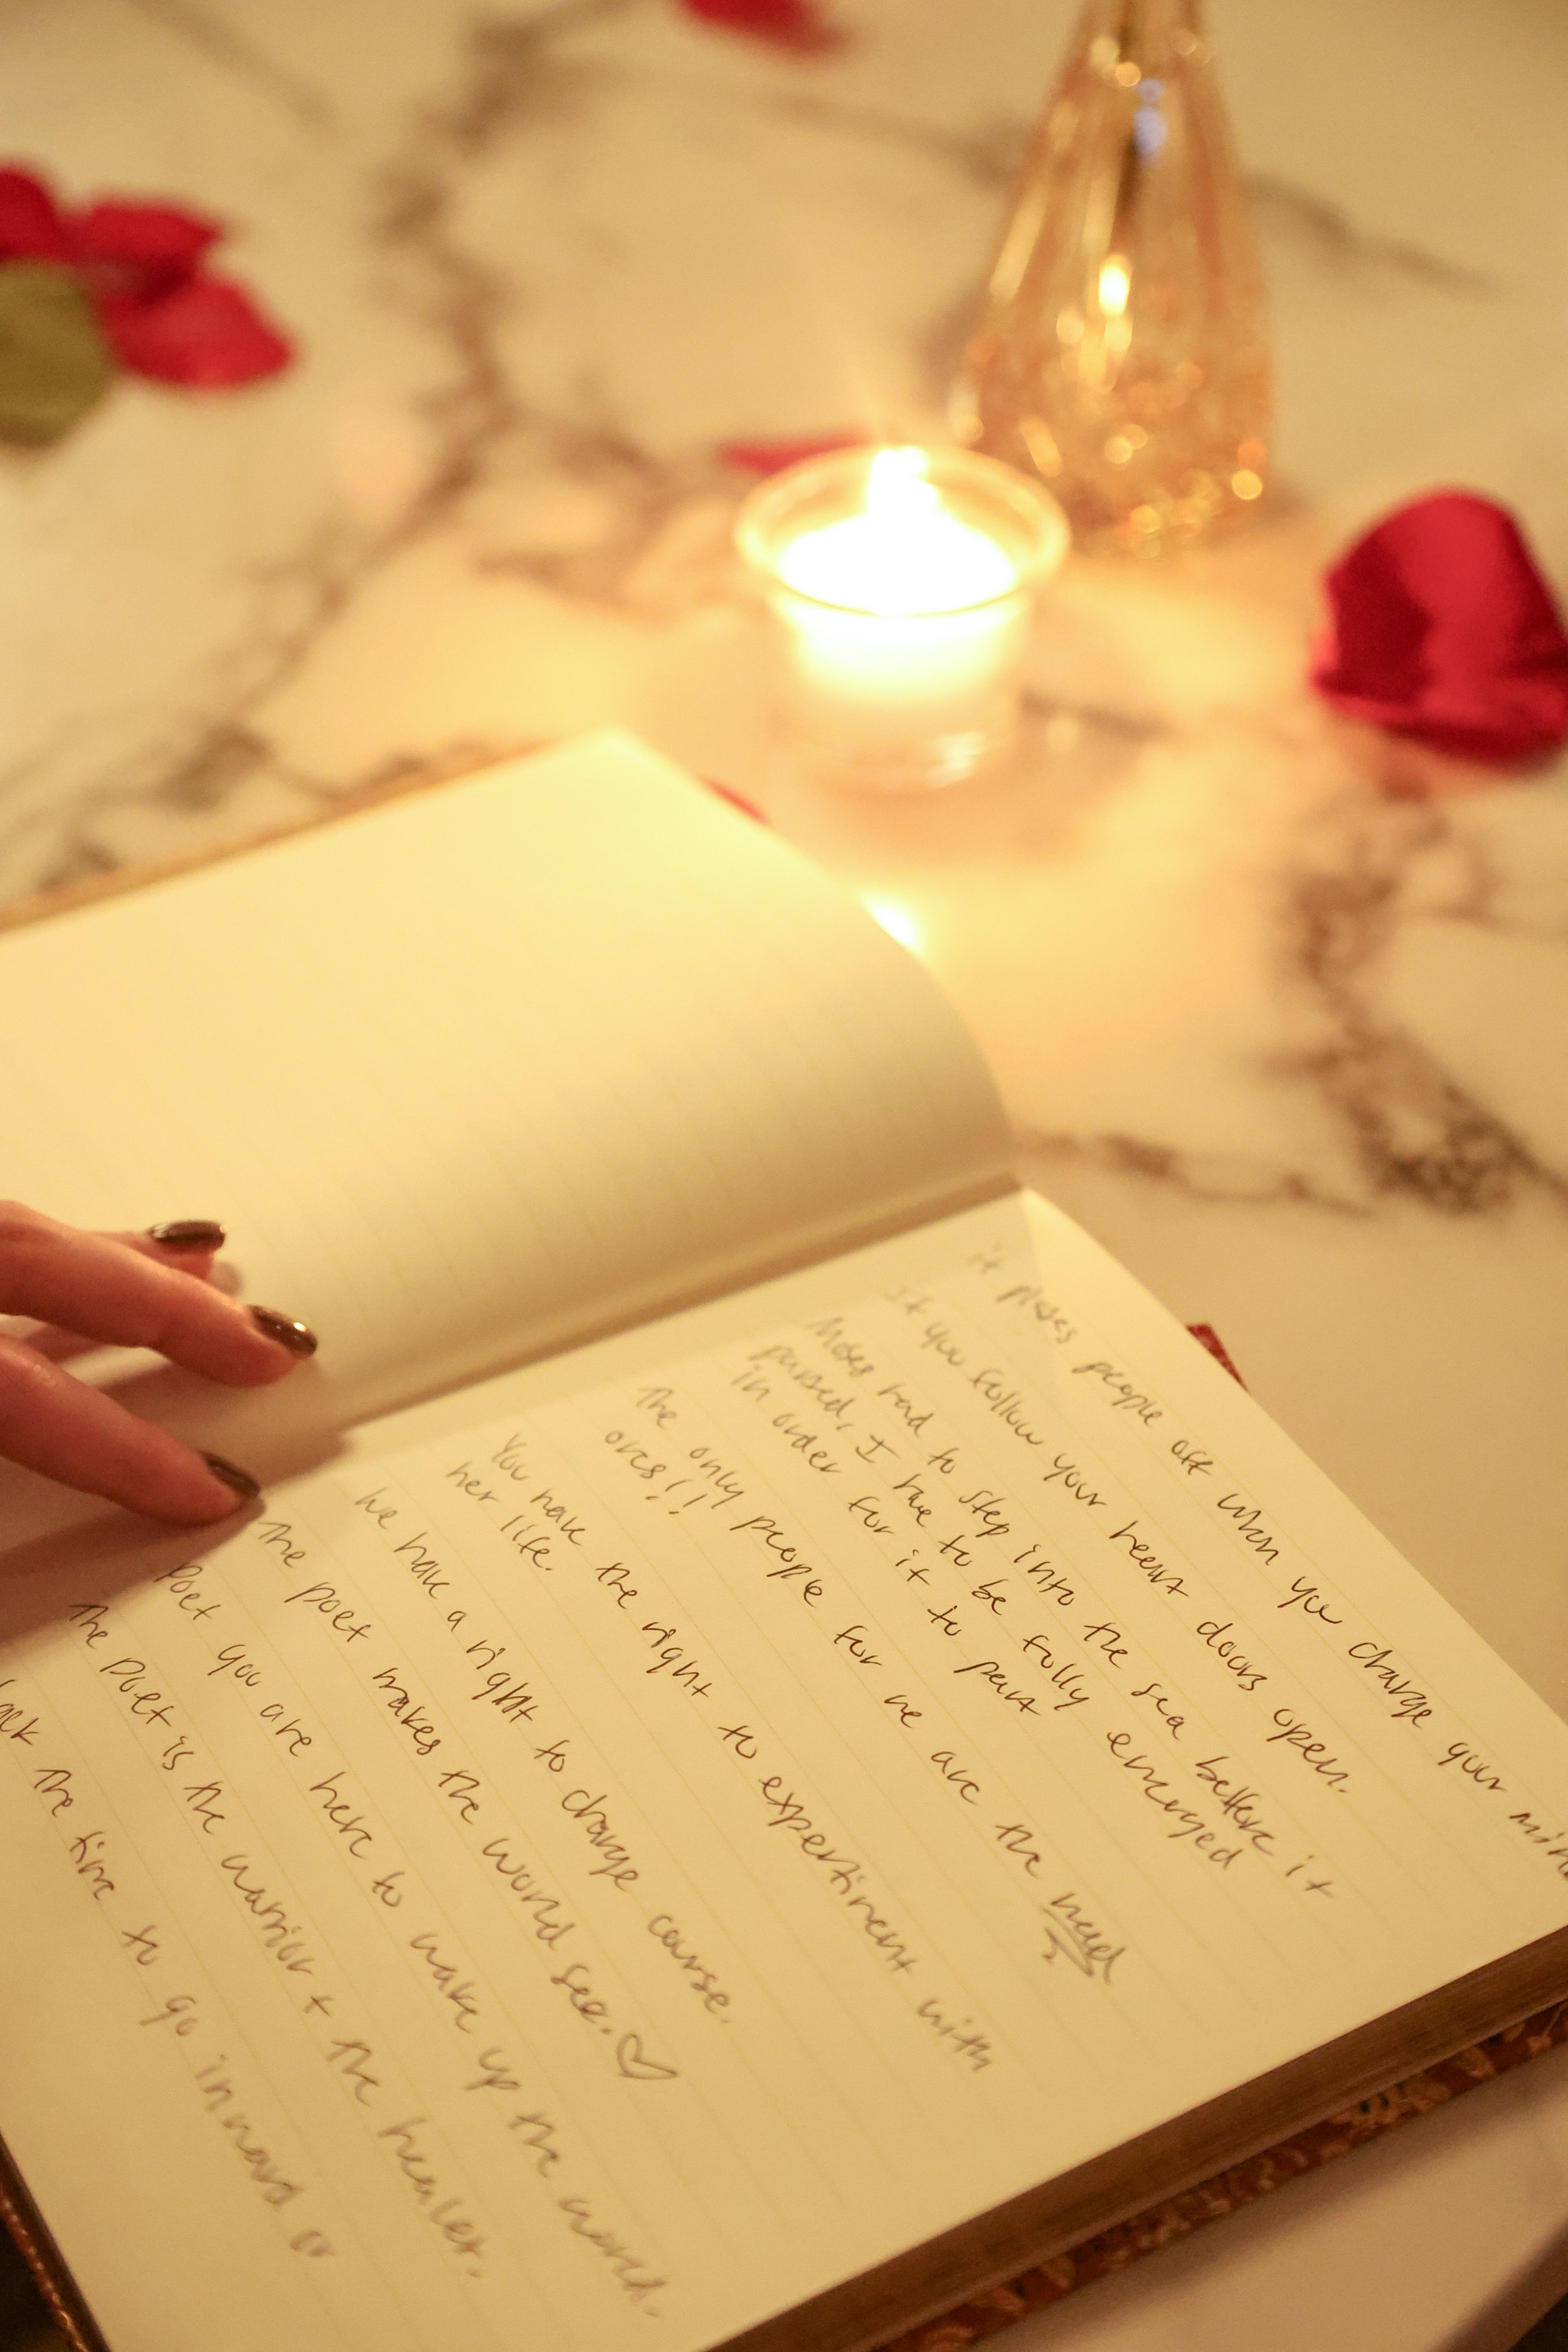 it pisses people off when you change your mind
If you follow your heart doors open.
Moses had to step into the sea before it
parted, I have to be fully emerged
in order for it to part
The only people for me are the mad
ones!!
You have the right to expertiment with
her life.
We have a right to change course.
The poet makes the world see. ♡
Poet you are here to wake up the world.
The poet is the warrior + the healer.
the time to go inward or